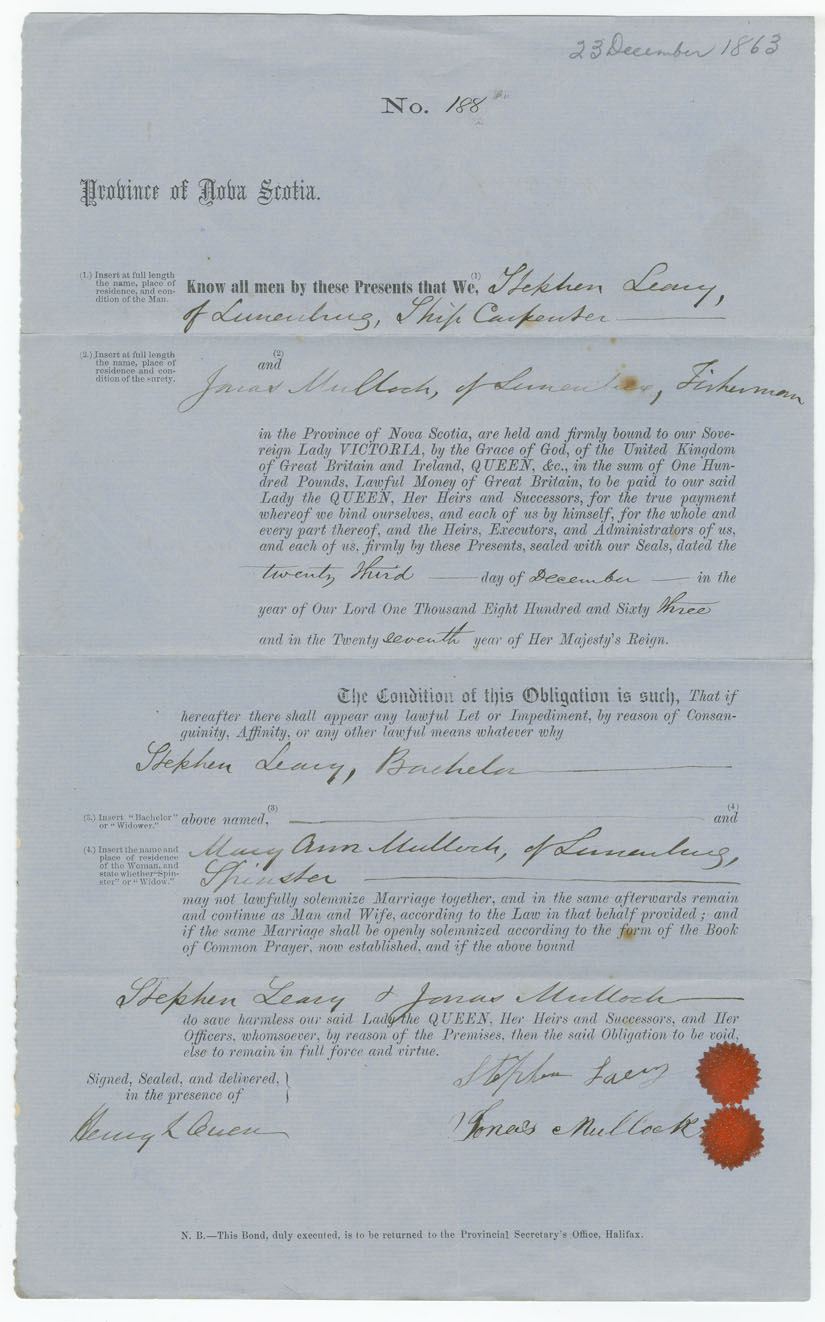 23 December 1863
No. 188
Province of Nova Scotia.
(1.) Insert at full length
the name, place of
residence, and con-
dition of the Man.
Know all men by these Presents that We, (1) Stephen Leary,
of Lunenburg, Ship Carpenter
(2.) Insert at full length
the name, place of
residence and con-
dition of the surety.
(2)
and
Jonas Mulloch, of Lunenburg, Fisherman
in the Province of Nova Scotia, are held and firmly bound to our Sove-
reign Lady VICTORIA, by the Grace of God, of the United Kingdom
of Great Britain and Ireland, QUEEN, &c., in the sum of One Hun-
dred Pounds, Lawful Money of Great Britain, to be paid to our said
Lady the QUEEN, Her Heirs and Successors, for the true payment
whereof we bind ourselves, and each of us by himself, for the whole and
every part thereof, and the Heirs, Executors, and Administrators of us,
and each of us, firmly by these Presents, sealed with our Seals, dated the
twenty third day of December in the
year of Our Lord One Thousand Eight Hundred and Sixty three
and in the Twenty seventh year of Her Majesty's Reign.
The Condition of this Obligation is such, That if
hereafter there shall appear any lawful Let or Impediment, by reason of Consan-
guinity, Affinity, or any other lawful means whatever why
Stephen Leary, Bachelor
(3.) Insert "Bachelor"
or "Widower."
above named, (3) (4) and
(4.) Insert the name and
place of residence
of the Woman, and
state whether "Spin-
ster" or "Widow."
Mary Ann Mulloch, of Lunenburg,
Spinster
may not lawfully solemnize Marriage together, and in the same afterwards remain
and continue as Man and Wife, according to the Law in that behalf provided; and
if the same Marriage shall be openly solemnized according to the form of the Book
of Common Prayer, now established, and if the above bound
Stephen Leary & Jonas Mulloch
do save harmless our said Lady the QUEEN, Her Heirs and Successors, and Her
Officers, whomsoever, by reason of the Premises, then the said Obligation to be void,
else to remain in full force and virtue.
Signed, Sealed, and delivered,
in the presence of
Stephen Laery
Henry L Owen
Jonas Mullock
N. B.—This Bond, duly executed, is to be returned to the Provincial Secretary's Office, Halifax.